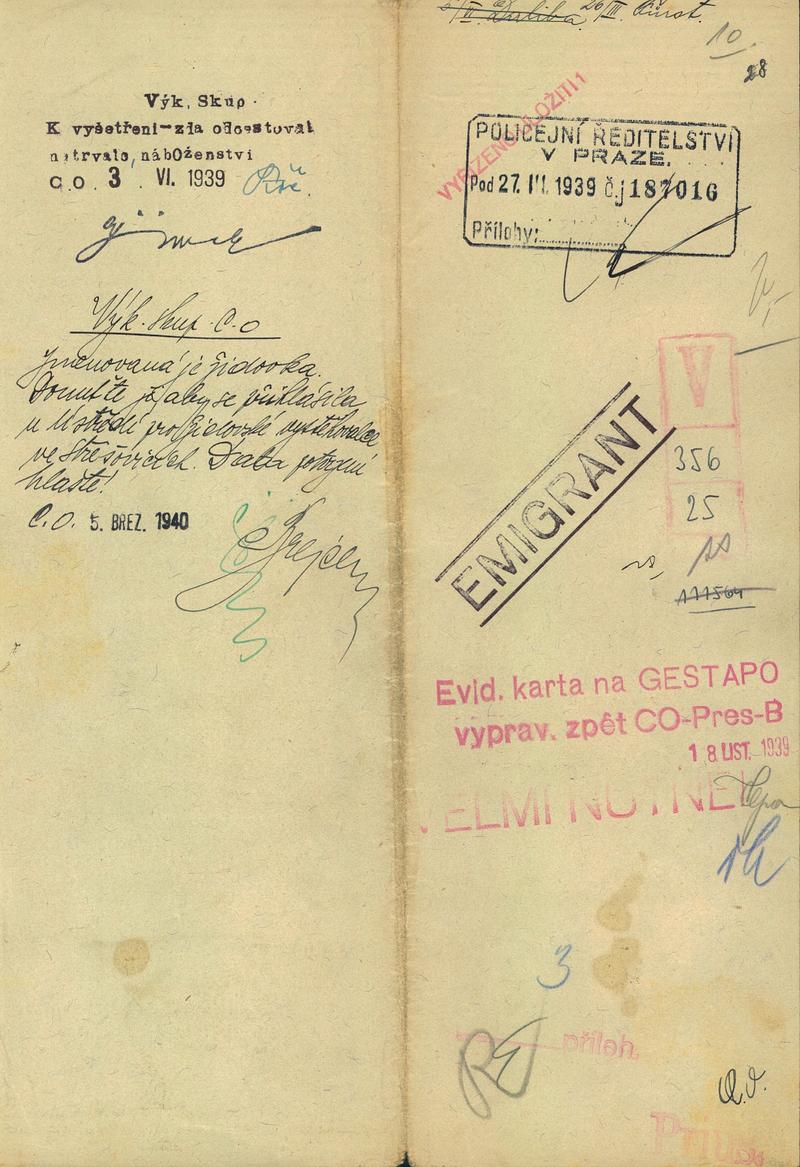 Výk. Skup.
K vyšetření-zda odcestoval
natrvalo, náboženství
C.O. 3. VI. 1939
Výk. skup. C.O
Jmenovaná je židovka.
Donuťte ji aby se přihlásila
u Ústředí pro židovské vystěhovalce
ve Střešovicích. Další potvrzení
hlaste!
C.O. 5. BŘEZ. 1940
26/III.
10
28
VYŘÍZENO ULOŽITI!
POLICEJNÍ ŘEDITELSTVÍ
V PRAZE.
Pod 27. III. 1939 č.j 187016
Přílohy:
V
356
25
EMIGRANT
111564
Evid. karta na GESTAPO
vyprav. zpět CO-Pres-B
18 LIST. 1939
VELMI NUTNÉ!
3
příloh.